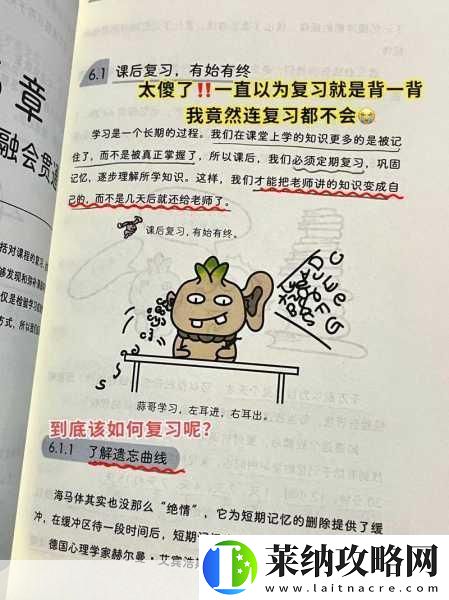 6.1 课后复习，有始有终
太傻了‼️一直以为复习就是背一背
我竟然连复习都不会😭
学习是一个长期的过程。我们在课堂上学的知识更多的是被记
住了，而不是被真正掌握了，所以课后，我们必须定期复习，巩固
记忆，逐步理解所学知识。这样，我们才能把老师讲的知识变成自
己的，而不是几天后就还给老师了。
课后复习，有始有终。
蒜哥学习，左耳进，右耳出。
到底该如何复习呢？
6.1.1 了解遗忘曲线
海马体其实也没那么“绝情”，它为短期记忆的删除提供了缓
冲，在缓冲区待一段时间后，短期记
德国心理学家赫尔曼·艾宾浩
章
融会贯通
括对课程的复习
够发现和弥补
仅是检验学习
方式，所以我们
莱纳攻略网
www.laitnacre.com